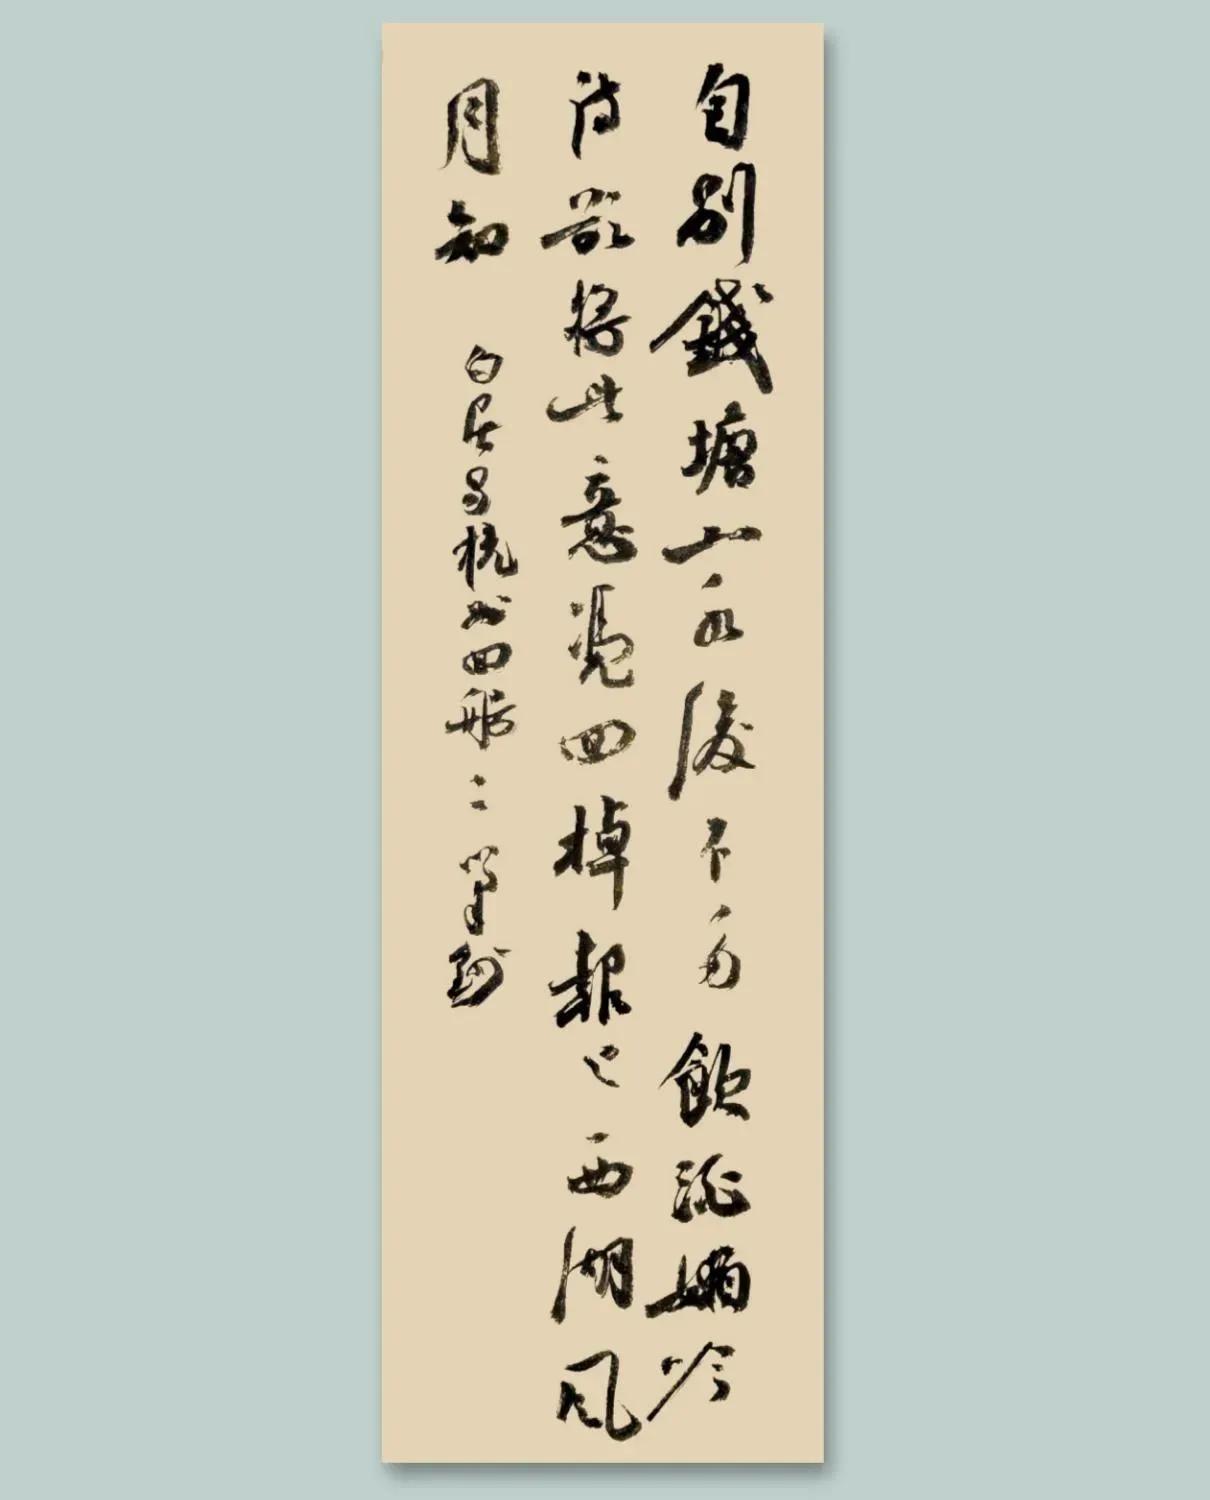 自別錢塘山水後不多飲酒嬾吟
诗欲將此意凴回棹報与西湖风
月知
白居易杭州回舫